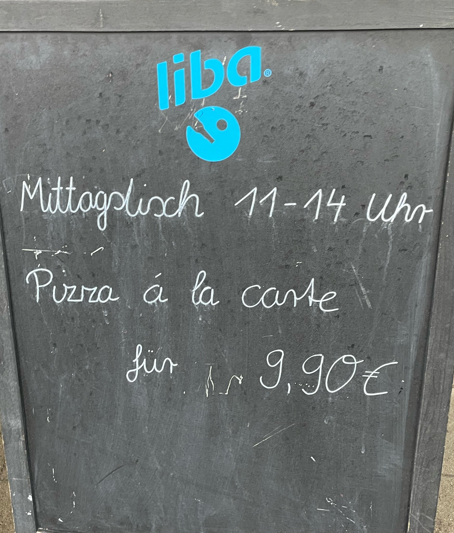 liba®
Mittagstisch 11-14 Uhr
Pizza á la carte
für 9,90€